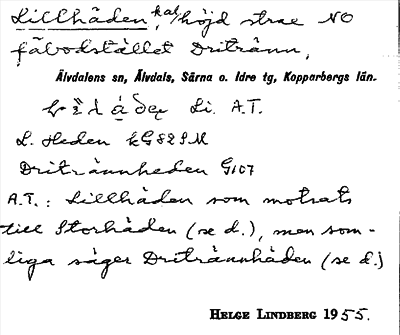 Lillhåden, kal höjd strax NO
fäbodstället Dritränn,
Älvdalens sn, Älvdals, Särna o. Idre tg, Kopparbergs län.
Li. A.T.
L. Heden kG829M
Dritrännheden G107
A.T.: Lillhåden som motsats
till Storhåden (se d.), men som-
liga säger Dritrännhåden (se d.)
HELGE LINDBERG 1955.